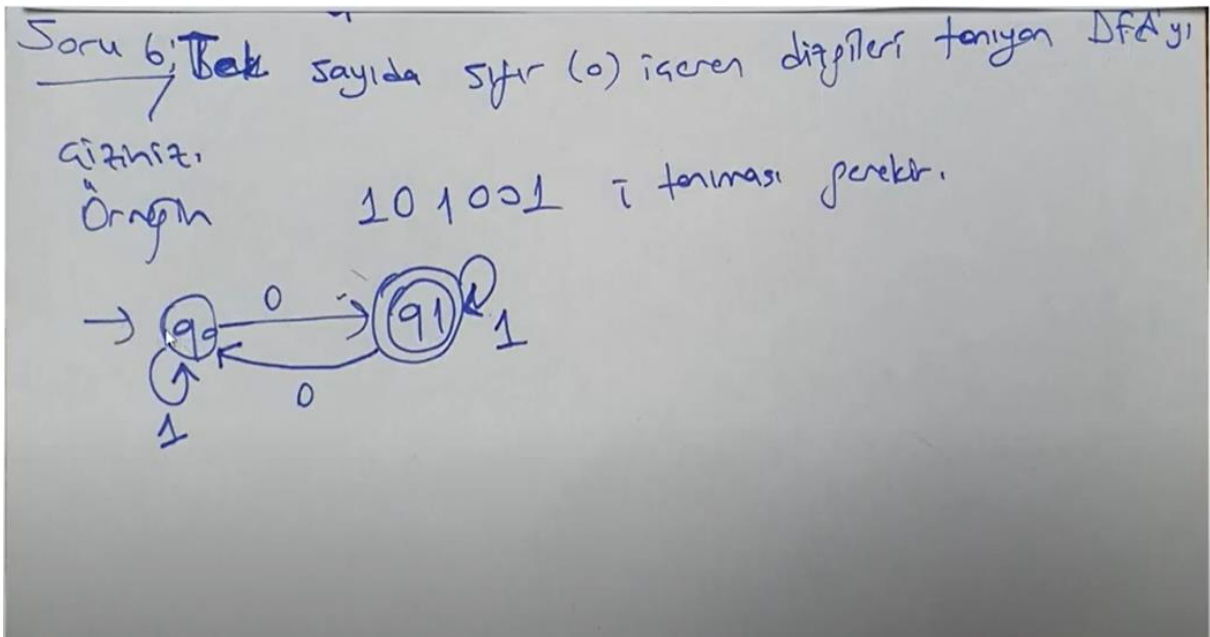 Soru 6; Tek sayıda sıfır (0) içeren dizgileri tanıyan DFA'yı
çiziniz.
Örneğin 101001 i tanıması gerekir.
0
q0 q1
1
0
1